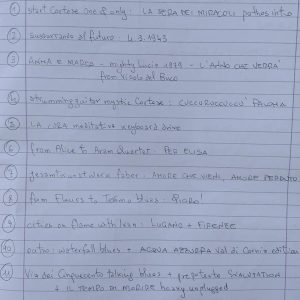 ① start Cortese one & only: LA SERA DEI MIRACOLI pathos intro
② sussurrando al futuro: 4.3.1943
③ ANNA E MARCO - mighty Lucio 1979 - L'ANNO CHE VERRÀ
from Vicolo del Buco
④ strumming guitar mystic Cortese: CUCCURUCUCCÙ PALOMA
⑤ LA CURA meditative keyboard drive
⑥ from Alice to Aram Quartet: PER ELISA
⑦ gesamtkunstwerk faber: AMORE CHE VIENI, AMORE PERDUTO
⑧ from Fleurs to Torino blues:
⑨ action on flame with Ivan: LUGANO + FIRENZE
⑩ patho: waterfall blues + ACQUA AZZURRA Val di Cornia edition
⑪ Via dei Cinquecento talking blues + prepotente
+ IL TEMPO DI MORIRE heavy unplugged